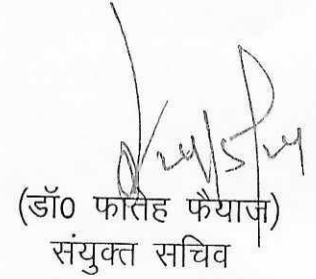 (डॉ0 फातेह फैयाज)
संयुक्त सचिव